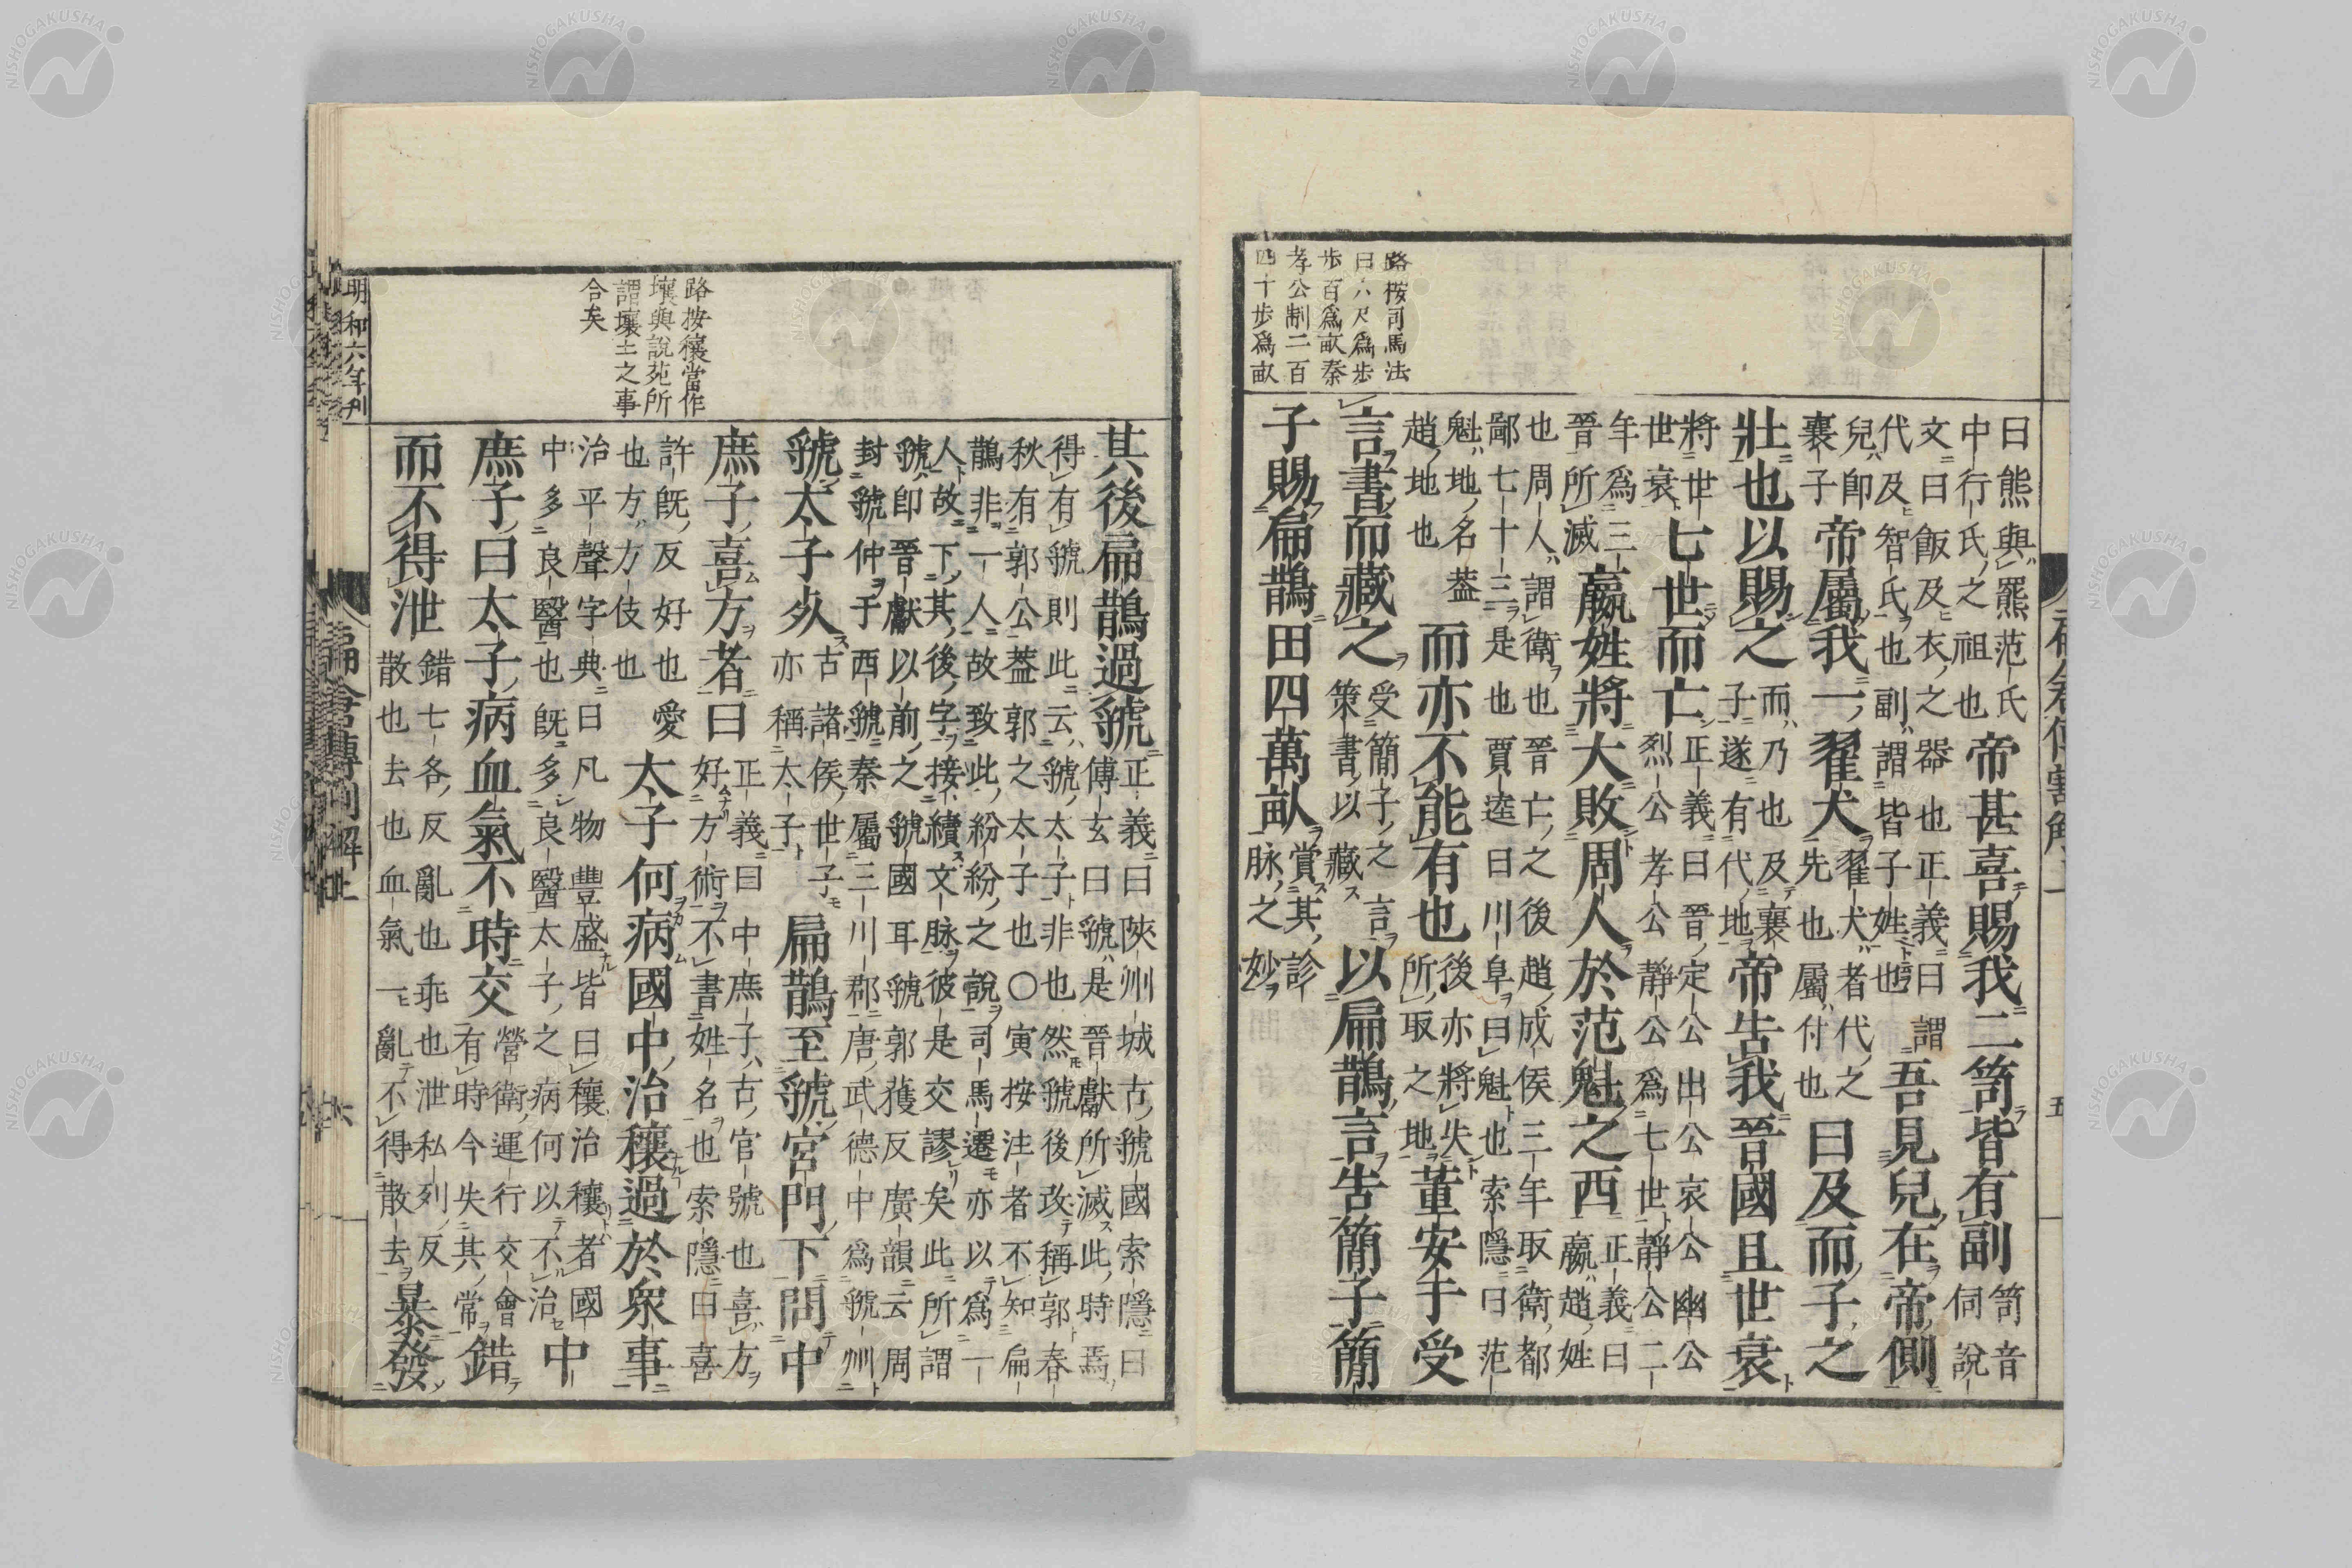 路按司馬法
曰六尺爲步
步百爲畝秦
孝公制二百
四十步爲畝
曰熊與羆范氏
中行氏之祖也
帝甚喜賜我二笥皆有副
笥音
伺說
文曰飯及衣之器也正義曰謂
代及智氏也副謂皆子姓也
吾見兒在帝側
兒卽
襄子
帝屬我一翟犬
翟犬者代之
先也屬付也
曰及而子之
壯也以賜之
而乃也及襄
子遂有代地
帝告我晉國且世衰
將世
世衰
七世而亡
正義曰晉定公出公哀公幽公
烈公孝公靜公爲七世靜公二
年爲三
晉所滅
嬴姓將大敗周人於范魁之西
正義曰
嬴趙姓
也周人謂衛也晉亡之後趙成侯三年取衛都
鄙七十三是也賈逵曰川阜曰魁也索隱曰范
魁地名葢
趙地也
而亦不能有也
後亦將失
所取之地
董安于受
言書而藏之
受簡子之言
策書以藏
以扁鵲言告簡子簡
子賜扁鵲田四萬畝
賞其診
脉之妙
五
路按穰當作
壤與說苑所
謂壤土之事
合矣
其後扁鵲過虢
正義曰陝州城古虢國索隱曰
傅玄曰虢是晉獻所滅此時焉
得有虢則此云虢太子非也然虢後改稱郭春
秋有郭公葢郭之太子也○寅按注者不知扁
鵲非一人故致此紛紛之說司馬遷亦以爲一
人故下其後字接續文脉彼是交謬矣此所謂
虢卽晉獻以前之虢國耳虢郭獲反廣韻云周
封虢仲于西虢秦屬三川郡唐武德中爲虢州
虢太子死
古諸侯世子
亦稱太子
扁鵲至虢宮門下問中
庶子喜方者曰
正義曰中庶子古官號也喜方
好方術不書姓名也索隱曰喜
許旣反好也愛
也方方伎也
太子何病國中治穰過於衆事
治平聲字典曰凡物豐盛皆曰穰治穰者國
中多良醫也旣多良醫太子之病何以不治
中
庶子曰太子病血氣不時交
營衛運行交會
有時今失其常
錯
而不得泄
錯七各反亂也乖也泄私列反
散也去也血氣一亂不得散去
暴發
明和六年刊
扁倉傳割解上
六